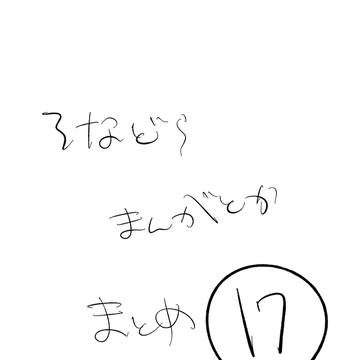 そなどら
まんがとか
まとめ 17